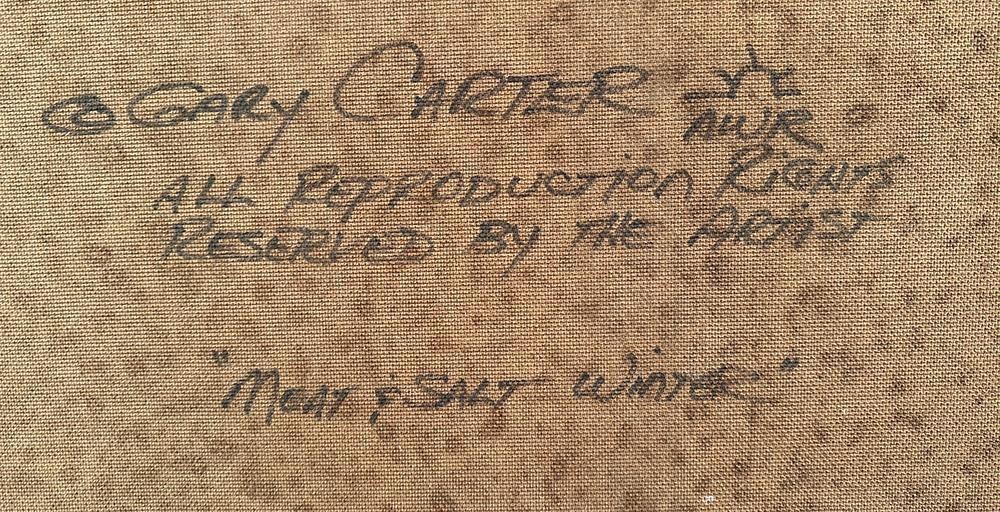 © GARY CARTER AWR
ALL REPRODUCTION RIGHTS
RESERVED BY THE ARTIST
"MEAT & SALT WINTER"